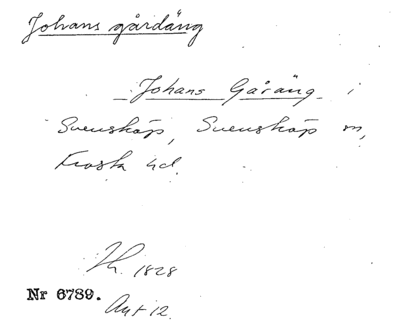 Johans gårdäng
Johans Gåräng i
Svensköp, Svensköp sn,
Frosta hd.
Lh. 1828
Nr 6789.
Akt 12.